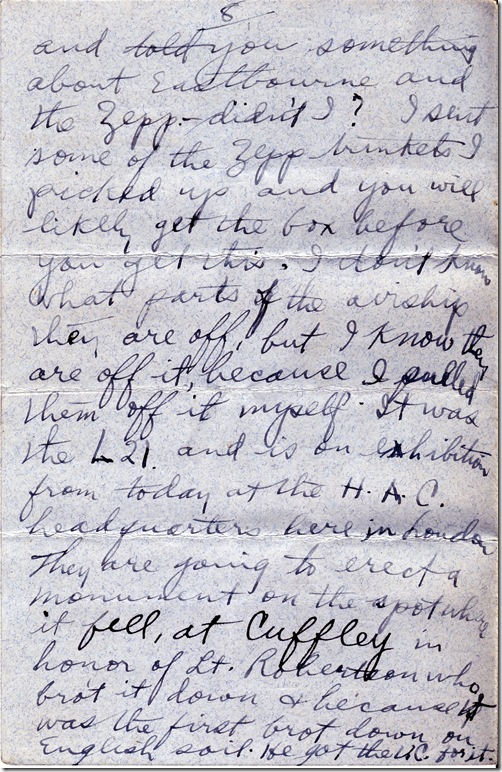 8
and told you something
about Eastbourne and
the Zepp - didn't I? I sent
some of the Zepp trinkets I
picked up and you will
likely get the box before
you get this. I don't know
what parts of the airship
they are off, but I know they
are off it, because I pulled
them off it myself. It was
the L 21. and is on exhibition
from today at the H.A.C.
headquarters here in London
They are going to erect a
monument on the spot where
it fell, at Cuffley in
honor of Lt. Robertson who
bro't it down & because it
was the first brot down on
English soil. He got the V.C. for it.